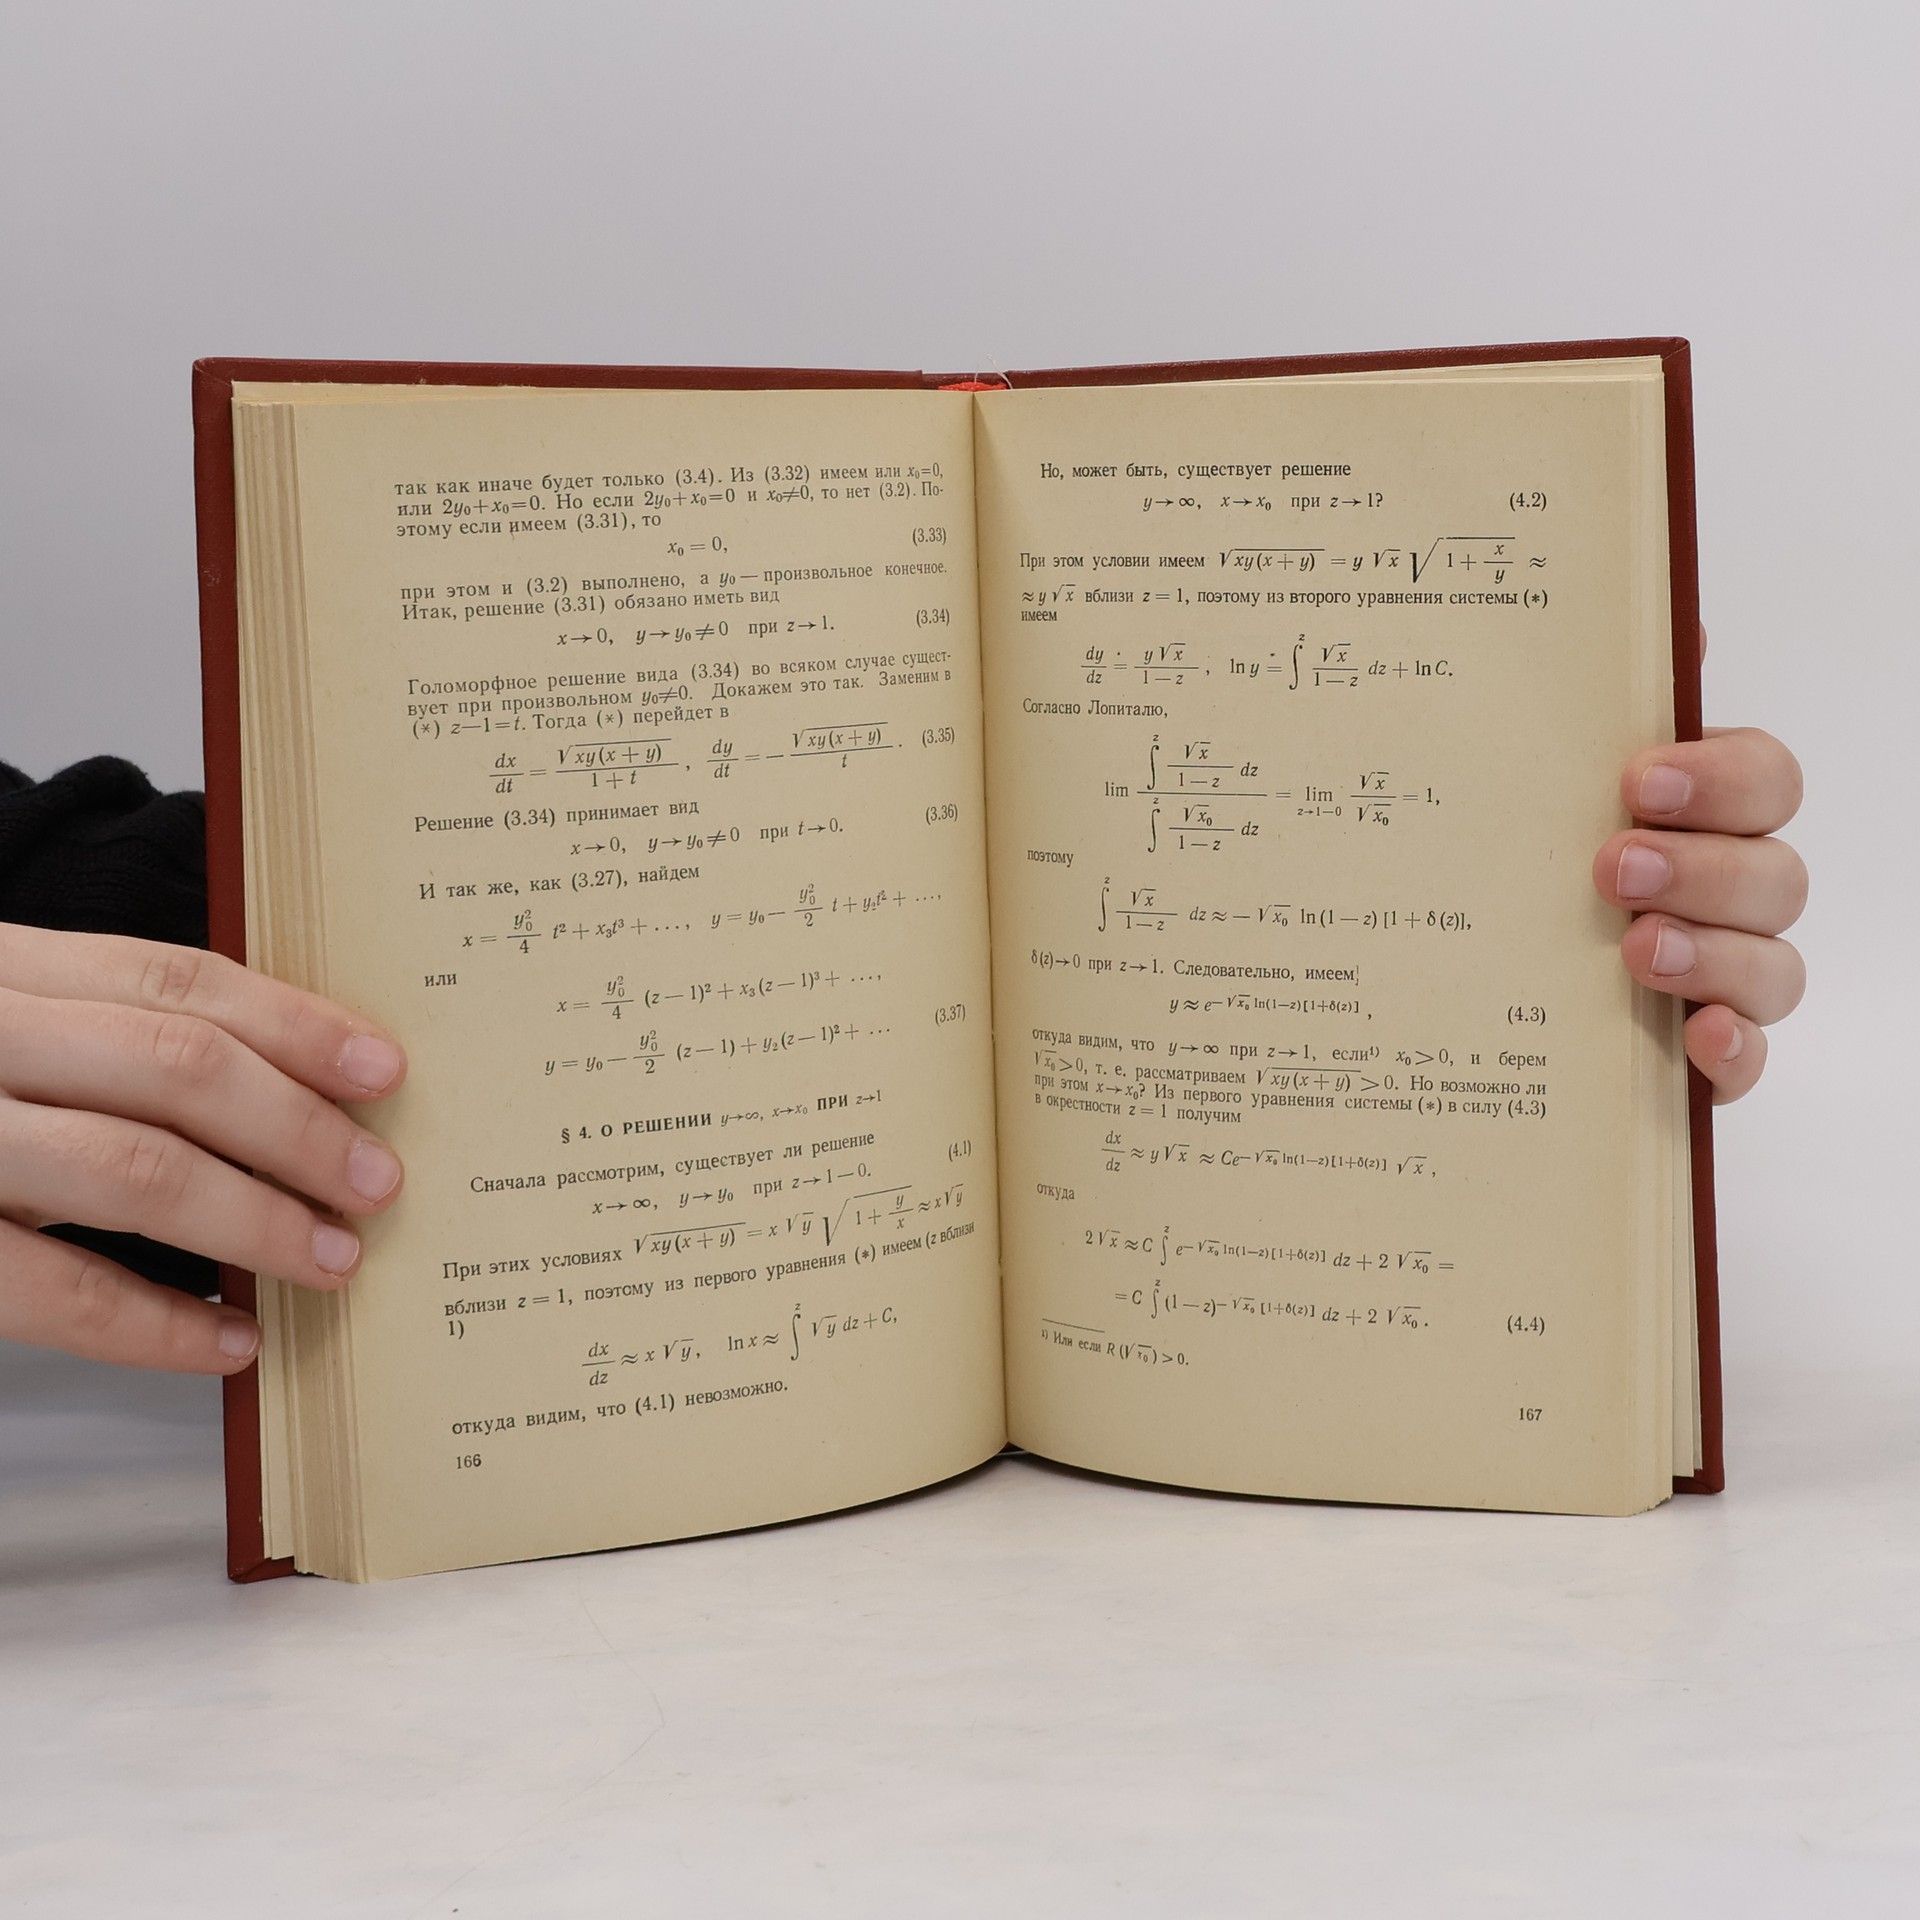 так как иначе будет только (3.4). Из (3.32) имеем или x₀=0,
или 2y₀+x₀=0. Но если 2y₀+x₀=0 и x₀≠0, то нет (3.2). По-
этому если имеем (3.31), то
x₀ = 0, (3.33)
при этом и (3.2) выполнено, а y₀ — произвольное конечное.
Итак, решение (3.31) обязано иметь вид
x→0, y→y₀≠0 при z→1. (3.34)
Голоморфное решение вида (3.34) во всяком случае сущест-
вует при произвольном y₀≠0. Докажем это так. Заменим в
(*) z—1=t. Тогда (*) перейдет в
dx/dt = √(xy(x+y))/(1+t), dy/dt = −√(xy(x+y))/t. (3.35)
Решение (3.34) принимает вид
x→0, y→y₀≠0 при t→0. (3.36)
И так же, как (3.27), найдем
x = y₀²/4 t² + x₃t³ + ..., y = y₀ − y₀²/2 t + y₂t² + ...,
или
x = y₀²/4 (z−1)² + x₃(z−1)³ + ...,
y = y₀ − y₀²/2 (z−1) + y₂(z−1)² + ... (3.37)
§ 4. О РЕШЕНИИ y→∞, x→x₀ ПРИ z→1
Сначала рассмотрим, существует ли решение
x→∞, y→y₀ при z→1−0. (4.1)
При этих условиях √(xy(x+y)) = x√y √(1+y/x) ≈ x√y
вблизи z = 1, поэтому из первого уравнения (*) имеем (z вблизи
1)
dx/dz ≈ x√y, ln x ≈ ∫ᶻ √y dz + C,
откуда видим, что (4.1) невозможно.
166
Но, может быть, существует решение
y→∞, x→x₀ при z→1? (4.2)
При этом условии имеем √(xy(x+y)) = y√x √(1+x/y) ≈
≈ y√x вблизи z = 1, поэтому из второго уравнения системы (*)
имеем
dy/dz ≐ y√x/(1−z), ln y ≐ ∫ᶻ √x/(1−z) dz + ln C.
Согласно Лопиталю,
lim (∫ᶻ √x/(1−z) dz)/(∫ᶻ √x₀/(1−z) dz) = lim z→1−0 √x/√x₀ = 1,
поэтому
∫ᶻ √x/(1−z) dz ≈ −√x₀ ln(1−z)[1+δ(z)],
δ(z)→0 при z→1. Следовательно, имеем
y ≈ e^(−√x₀ ln(1−z)[1+δ(z)]), (4.3)
откуда видим, что y→∞ при z→1, если¹⁾ x₀>0, и берем
√x₀>0, т. е. рассматриваем √(xy(x+y))>0. Но возможно ли
при этом x→x₀? Из первого уравнения системы (*) в силу (4.3)
в окрестности z = 1 получим
dx/dz ≈ y√x ≈ Ce^(−√x₀ ln(1−z)[1+δ(z)]) √x,
откуда
2√x ≈ C ∫ᶻ e^(−√x₀ ln(1−z)[1+δ(z)]) dz + 2√x₀ =
= C ∫ᶻ (1−z)^(−√x₀[1+δ(z)]) dz + 2√x₀. (4.4)
¹⁾ Или если R(√x₀)>0.
167